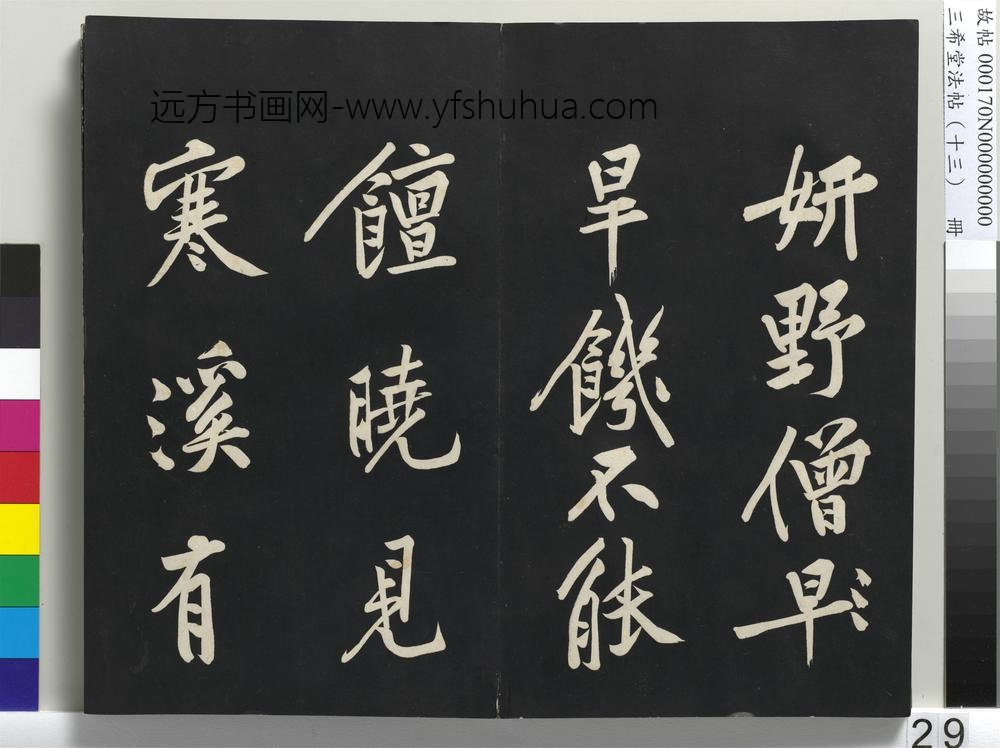 远方书画网-www.yfshuhua.com
妍野僧早
旱饑不能
饘曉見
寒溪有
故帖 000170N000000000
三希堂法帖（十三） 冊
29